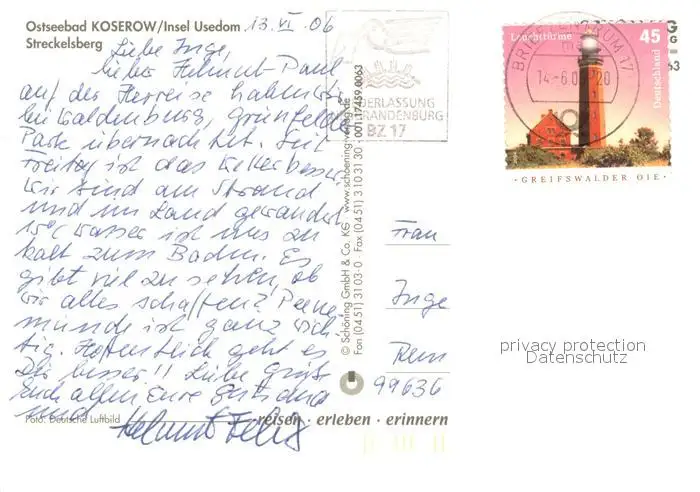 Ostseebad KOSEROW/Insel Usedom
Streckelsberg
13. VI. 06
Liebe Inge,
lieber Helmut-Paul
auf der Herreise haben wir
bei Waldenburg, Grünfelder
Park übernachtet. Seit
Freitag ist das Wetter besser
wir sind am Strand
und im Land gewandert
15°C Wasser ist uns zu
kalt zum Baden. Es
gibt viel zu sehen, ob
wir alles schaffen? Peene
münde ist ganz rich
tig. Hoffentlich geht es
Dir besser!! Liebe Grüße
Euch allen Eure
und Helmut
Foto: Deutsche Luftbild
reisen · erleben · erinnern
© Schöning GmbH & Co. KG · www.schoening-verlag.de
Fon (04 51) 3103-0 · Fax (04 51) 310 31 30 · 001.17489.0063
NIEDERLASSUNG
BRANDENBURG
BZ 17
BRIEFZENTRUM 17
14.-6.06 20
Leuchttürme
45
Deutschland
· GREIFSWALDER OIE ·
Frau
Inge
99636
privacy protection
Datenschutz